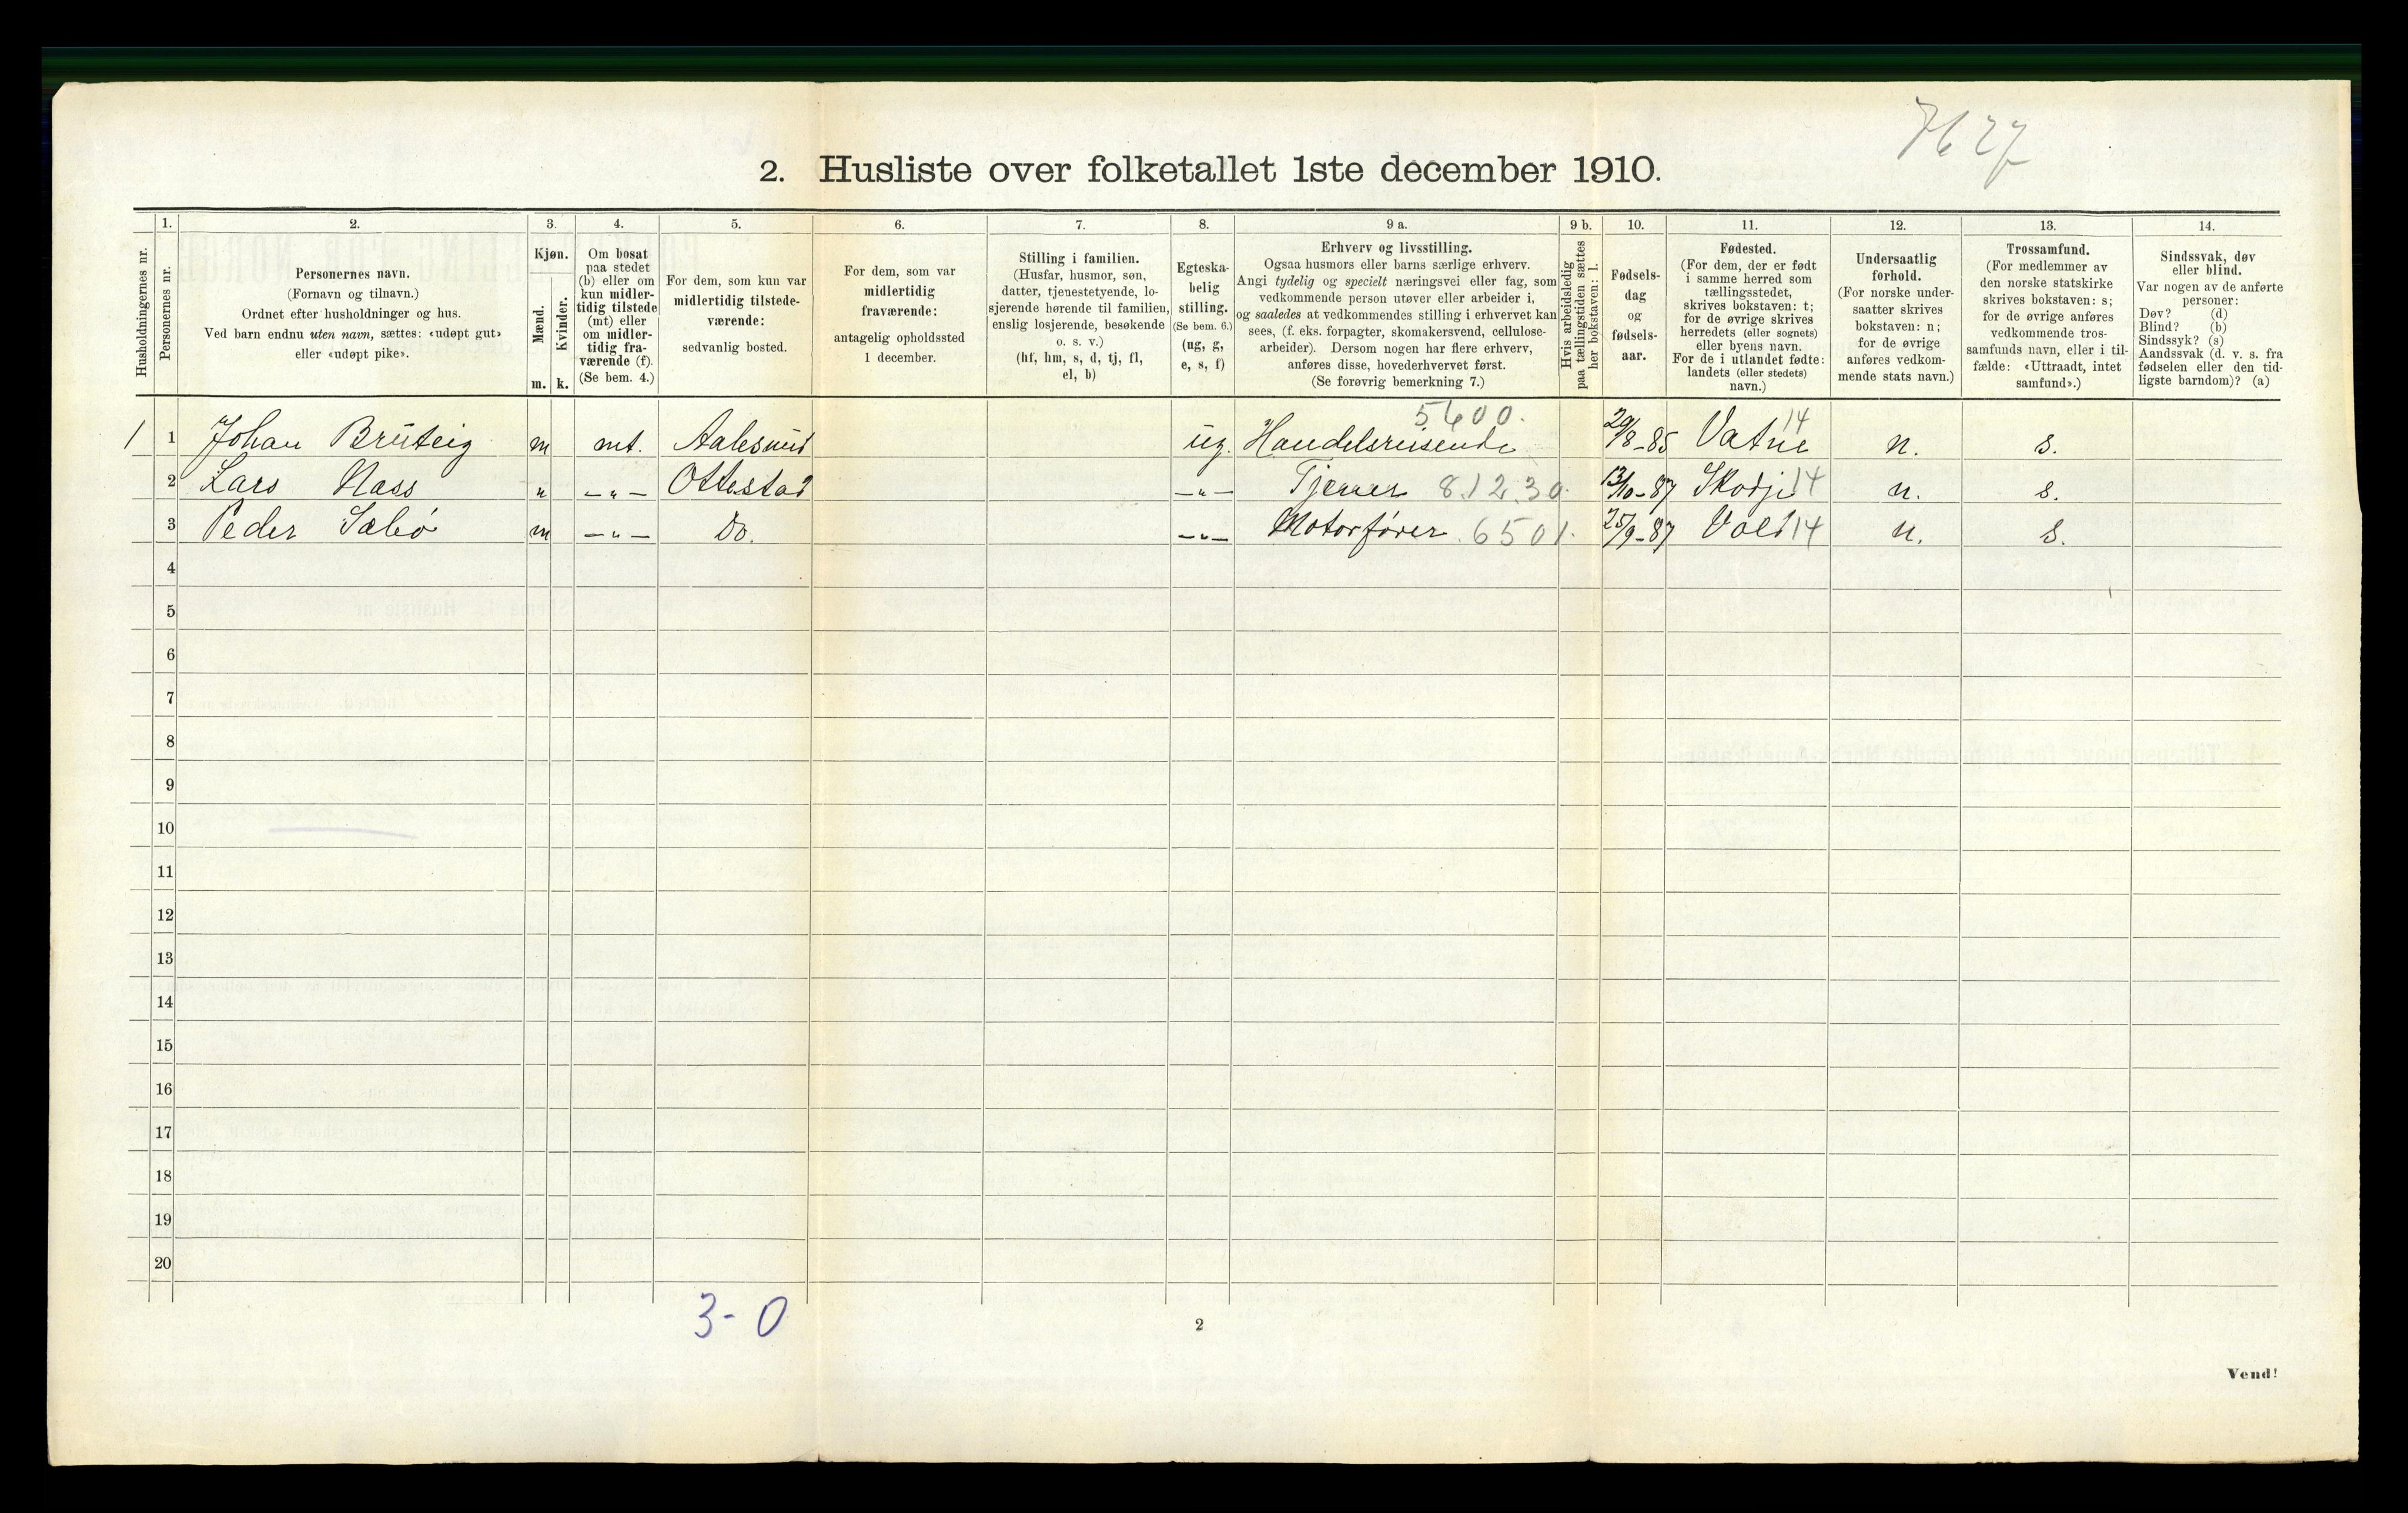 7627
2. Husliste over folketallet 1ste december 1910.
Husholdningernes nr.
1.
Personernes nr.
2.
Personernes navn.
(Fornavn og tilnavn.)
Ordnet efter husholdninger og hus.
Ved barn endnu uten navn, sættes: «udøpt gut»
eller «udøpt pike».
3.
Kjøn.
Mænd.
Kvinder.
m. k.
4.
Om bosat
paa stedet
(b) eller om
kun midler-
tidig tilstede
(mt) eller
om midler-
tidig fra-
værende (f).
(Se bem. 4.)
5.
For dem, som kun var
midlertidig tilstede-
værende:
sedvanlig bosted.
6.
For dem, som var
midlertidig
fraværende:
antagelig opholdssted
1 december.
7.
Stilling i familien.
(Husfar, husmor, søn,
datter, tjenestetyende, lo-
sjerende hørende til familien,
enslig losjerende, besøkende
o. s. v.)
(hf, hm, s, d, tj, fl,
el, b)
8.
Egteska-
belig
stilling.
(Se bem. 6.)
(ug, g,
e, s, f)
9 a.
Erhverv og livsstilling.
Ogsaa husmors eller barns særlige erhverv.
Angi tydelig og specielt næringsvei eller fag, som
vedkommende person utøver eller arbeider i,
og saaledes at vedkommendes stilling i erhvervet kan
sees, (f. eks. forpagter, skomakersvend, cellulose-
arbeider). Dersom nogen har flere erhverv,
anføres disse, hovederhvervet først.
(Se forøvrig bemerkning 7.)
9 b.
Hvis arbeidsledig
paa tællingstiden sættes
her bokstaven: l.
10.
Fødsels-
dag
og
fødsels-
aar.
11.
Fødested.
(For dem, der er født
i samme herred som
tællingsstedet,
skrives bokstaven: t;
for de øvrige skrives
herredets (eller sognets)
eller byens navn.
For de i utlandet fødte:
landets (eller stedets)
navn.)
12.
Undersaatlig
forhold.
(For norske under-
saatter skrives
bokstaven: n;
for de øvrige
anføres vedkom-
mende stats navn.)
13.
Trossamfund.
(For medlemmer av
den norske statskirke
skrives bokstaven: s;
for de øvrige anføres
vedkommende tros-
samfunds navn, eller i til-
fælde: «Uttraadt, intet
samfund».)
14.
Sindssvak, døv
eller blind.
Var nogen av de anførte
personer:
Døv? (d)
Blind? (b)
Sindssyk? (s)
Aandssvak (d. v. s. fra
fødselen eller den tid-
ligste barndom)? (a)
5600. 14
1 1 Johan Bruteig m mt. Aalesund ug. Handelsreisende 29/8-85 Vatne n. s.
2 Lars Næss " -"- Ottestad -"- Tjener 8.12.30. 13/10-87 Skodje 14 n. s.
3 Peder Sæbø m -"- Do. -"- Motorfører 6501. 25/9-87 Vold 14 n. s.
4
5
6
7
8
9
10
11
12
13
14
15
16
17
18
19
20
3-0
2
Vend!